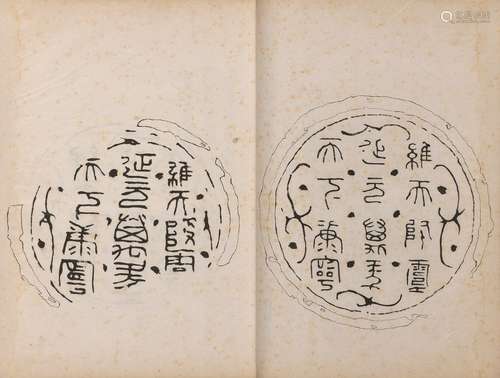 維天降靈
延元萬年
天下康寧
維天降靈
延元萬年
天下康寧